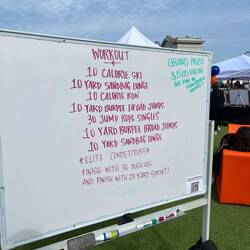 WORKOUT
10 CALORIE SKI
10 YARD SANDBAG LUNGE
10 CALORIE ROW
10 YARD BURPEE BROAD JUMPS
30 JUMP ROPE SINGLES
10 YARD BURPEE BROAD JUMPS
10 YARD SANDBAG LUNGE
*ELITE COMPETITORS*
FINISH WITH 30 PUSH UPS
AND FINISH WITH 20 YARD SPRINT!
GRAND PRIZE
$1500 VALUE